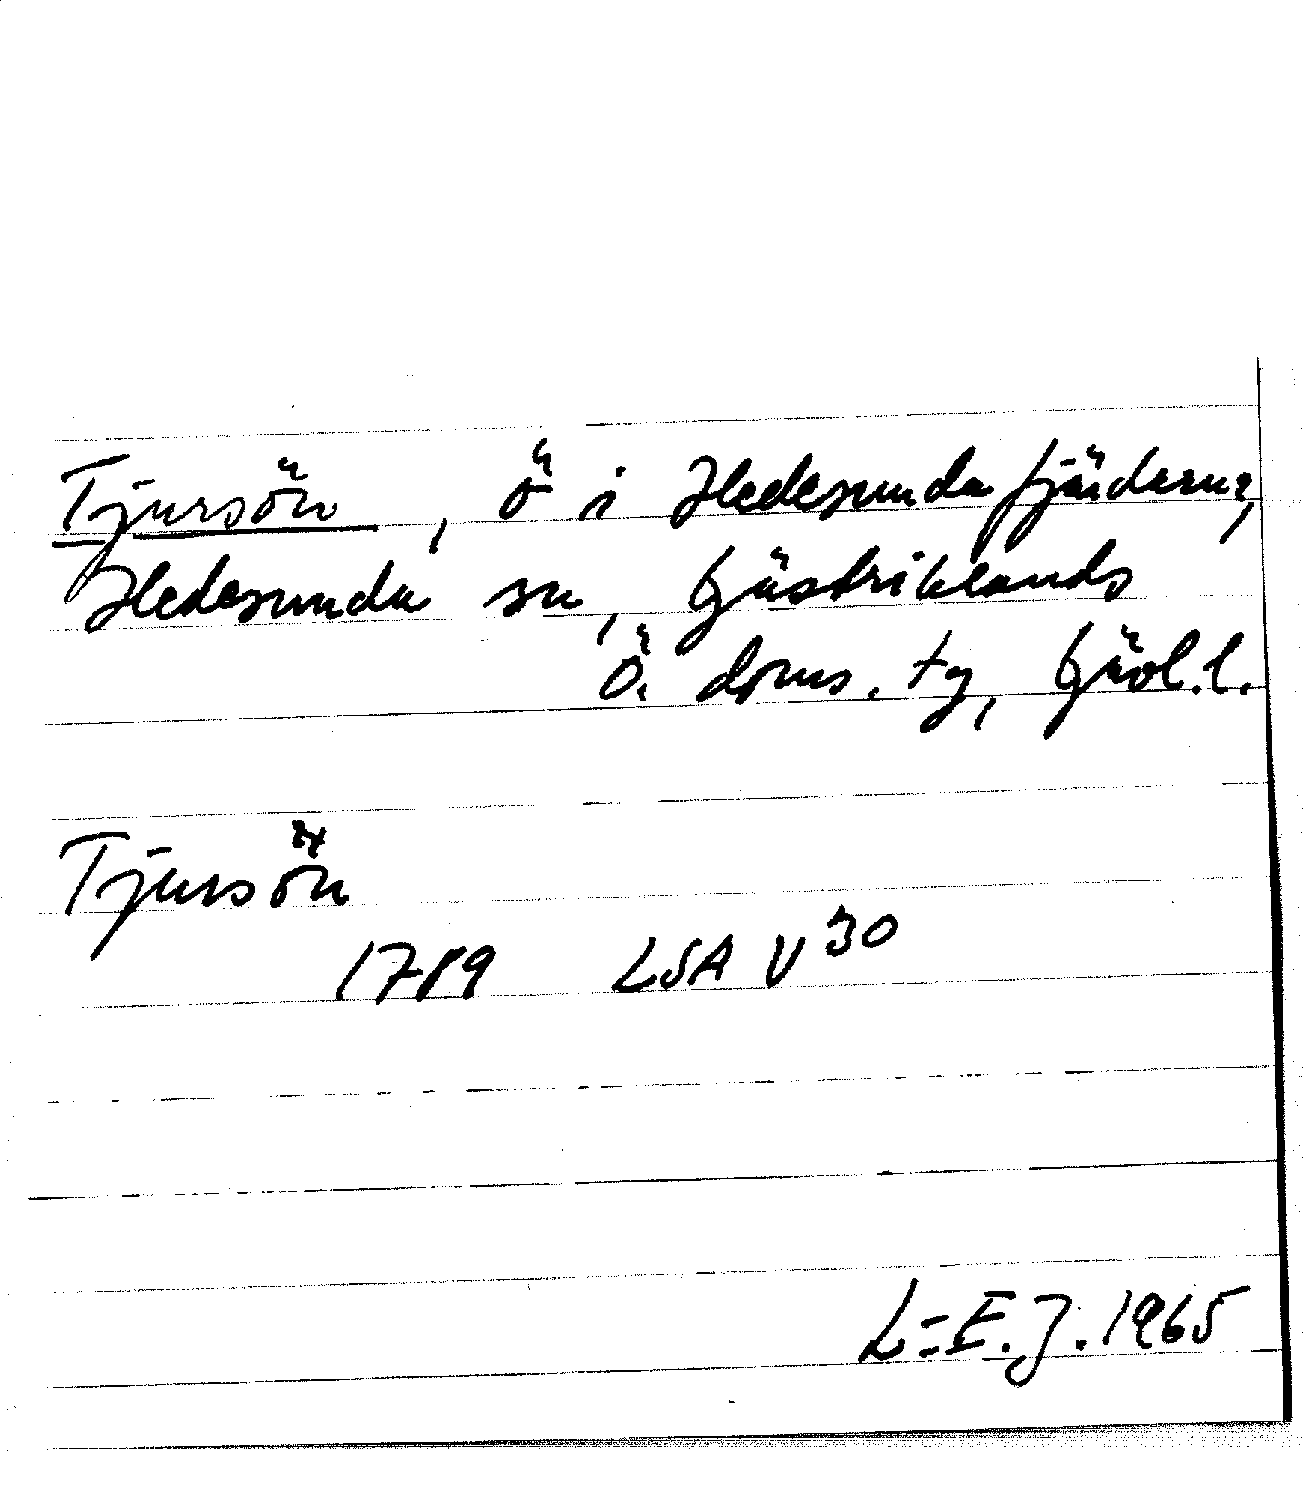 Tjursön, ö i Hedesundafjärdarna,
Hedesunda sn, Gästriklands
Ö. doms. tg, Gävl. l.
Tjursön
1789 LSA V 30
L-E. J. 1965